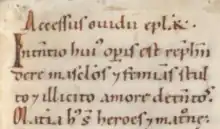 Accessus ovidii epl'ꝝ.
Intentio huiꝰ opis est rephen
dere masclos ⁊ feminas stul
to ⁊ illicito amore detentos
Materia hꝫ heroes ⁊ matrone.